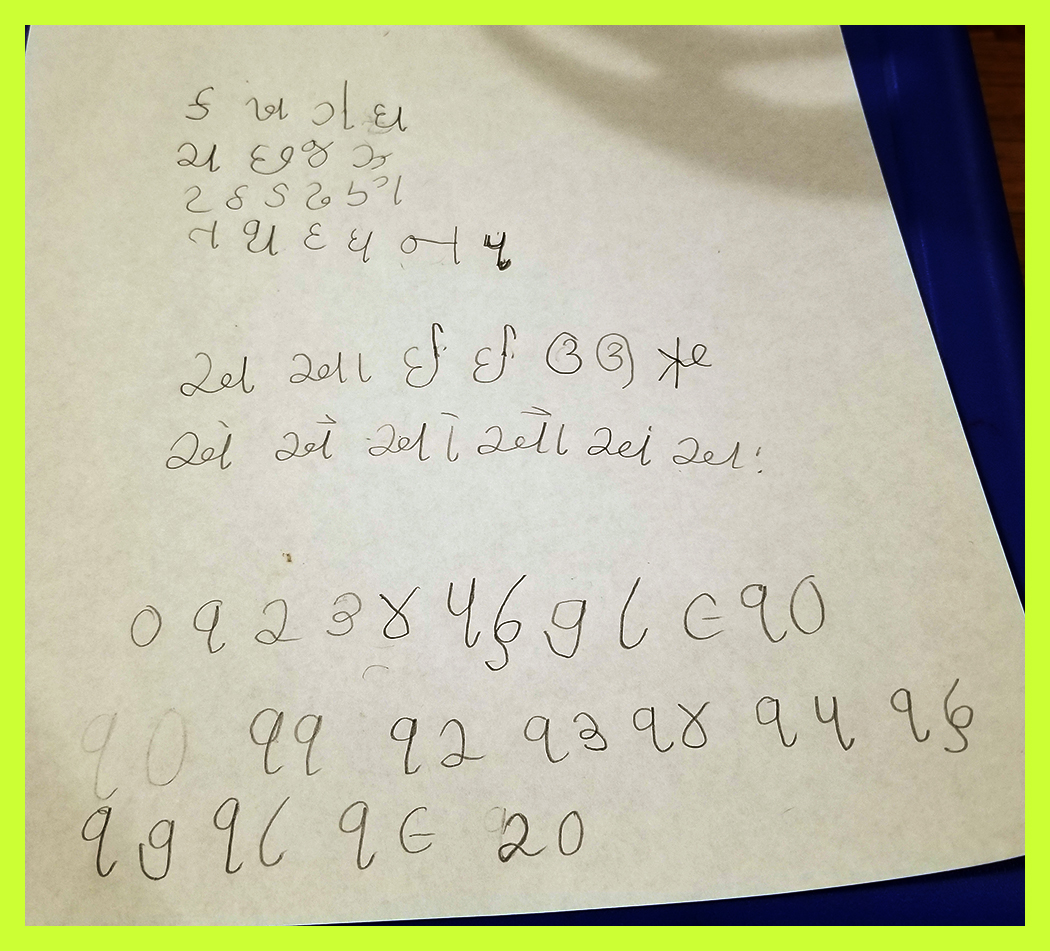 ક ખ ગ ઘ
ચ છ જ ઝ
ટ ઠ ડ ઢ ણ
ત થ દ ધ ન પ
અ આ ઈ ઈ ઉ ઊ ઋ
એ ઐ ઓ ઔ અં અઃ
૦ ૧ ૨ ૩ ૪ ૫ ૬ ૭ ૮ ૯ ૧૦
૧૦ ૧૧ ૧૨ ૧૩ ૧૪ ૧૫ ૧૬
૧૭ ૧૮ ૧૯ ૨૦